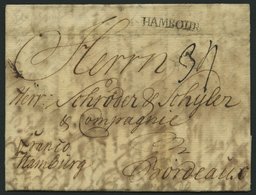 HAMBOUR
Herrn
Herrn Schröder & Schÿler
& Compagnie
Franco
Hamburg
Bordeaux